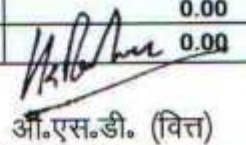 0.00
0.00
ओ.एस.डी. (वित्त)